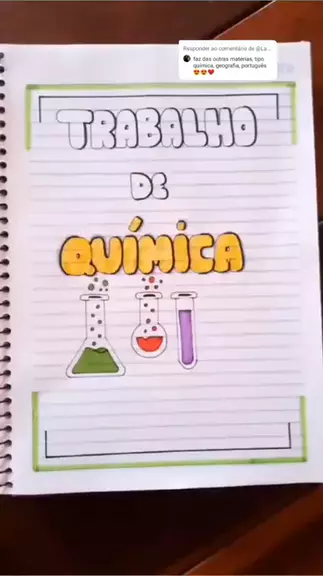 Responder ao comentário de @La...
faz das outras matérias, tipo
química, geografia, português
😍😍❤️
TRABALHO
DE
QUÍMICA